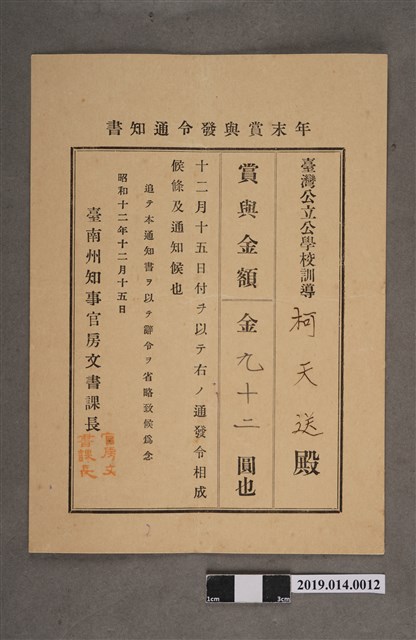 年末賞與發令通知書
臺灣公立公學校訓導 柯天送 殿
賞與金額 金 九十二 圓也
十二月十五日付ヲ以テ右ノ通發令相成
候條及通知候也
追テ本通知書ヲ以テ辭令ヲ省略致候爲念
昭和十二年十二月十五日
臺南州知事官房文書課長
官房文
書課長
1cm
3cm
2019.014.0012